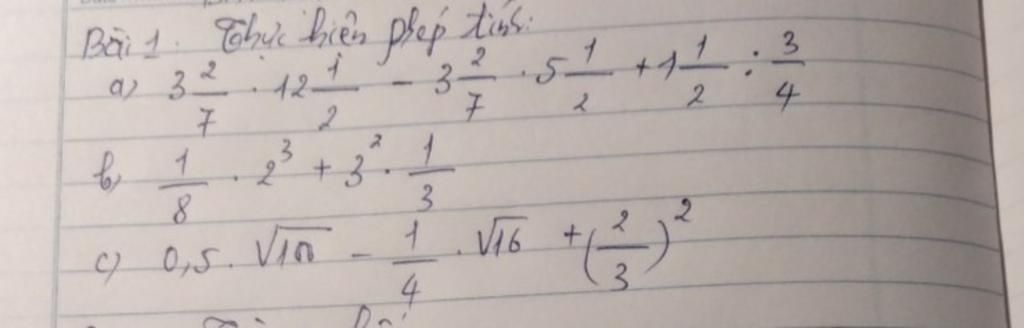 Bài 1. Thực hiện phép tính:
a) 3 2/7 . 12 1/2 - 3 2/7 . 5 1/2 + 1 1/2 : 3/4
b) 1/8 . 2³ + 3² . 1/3
c) 0,5 . √100 - 1/4 . √16 + (2/3)²